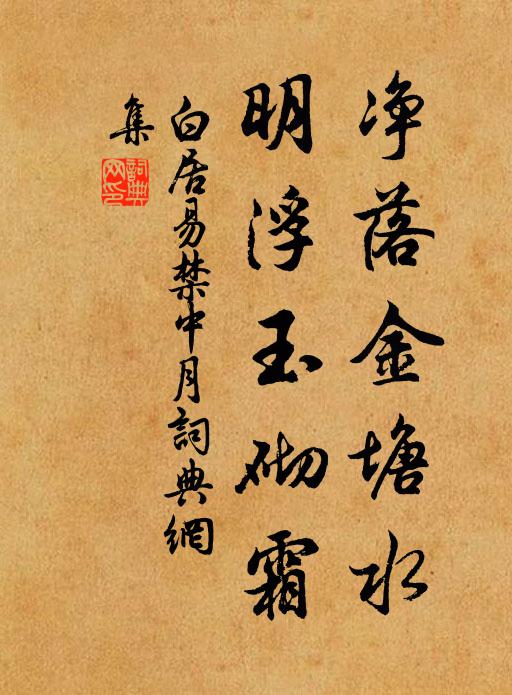 净落金塘水
明浮玉砌霜
白居易禁中月詞典網
集
詞典
网印